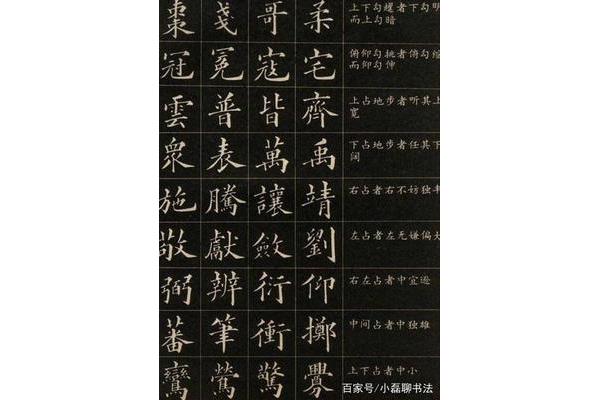 棗 戔 哥 柔 上下勾耀者下勾明
而上勾暗
冠 冕 寇 宅 俯仰勾挑者俯勾缩
而仰勾伸
雲 普 皆 齊 上占地步者听其上
宽
衆 表 萬 禹 下占地步者任其下
阔
施 騰 讓 靖 右占者右不妨独丰
敬 獻 斂 劉 左占者左无嫌偏大
弼 辨 衍 仰 右左占者中宜逊
蕃 筆 衝 擲 中间占者中独雄
鸞 鶯 驚 釁 上下占者中小
百家号/小磊聊书法